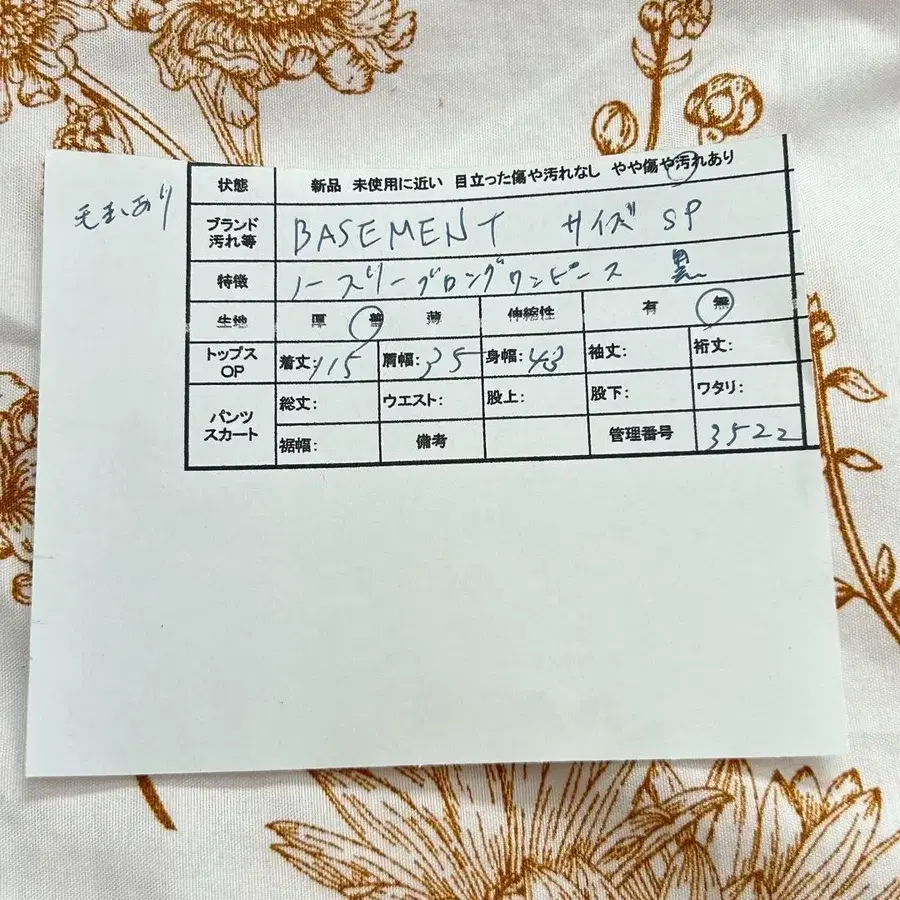 毛玉あり
状態 新品 未使用に近い 目立った傷や汚れなし やや傷や汚れあり
ブランド 汚れ等 BASEMENT サイズ SP
特徴 ノースリーブロングワンピース 黒
生地 厚 普 薄 伸縮性 有 無
トップス OP 着丈:115 肩幅:35 身幅:43 袖丈: 裄丈:
パンツ スカート 総丈: ウエスト: 股上: 股下: ワタリ:
裾幅: 備考 管理番号 3522